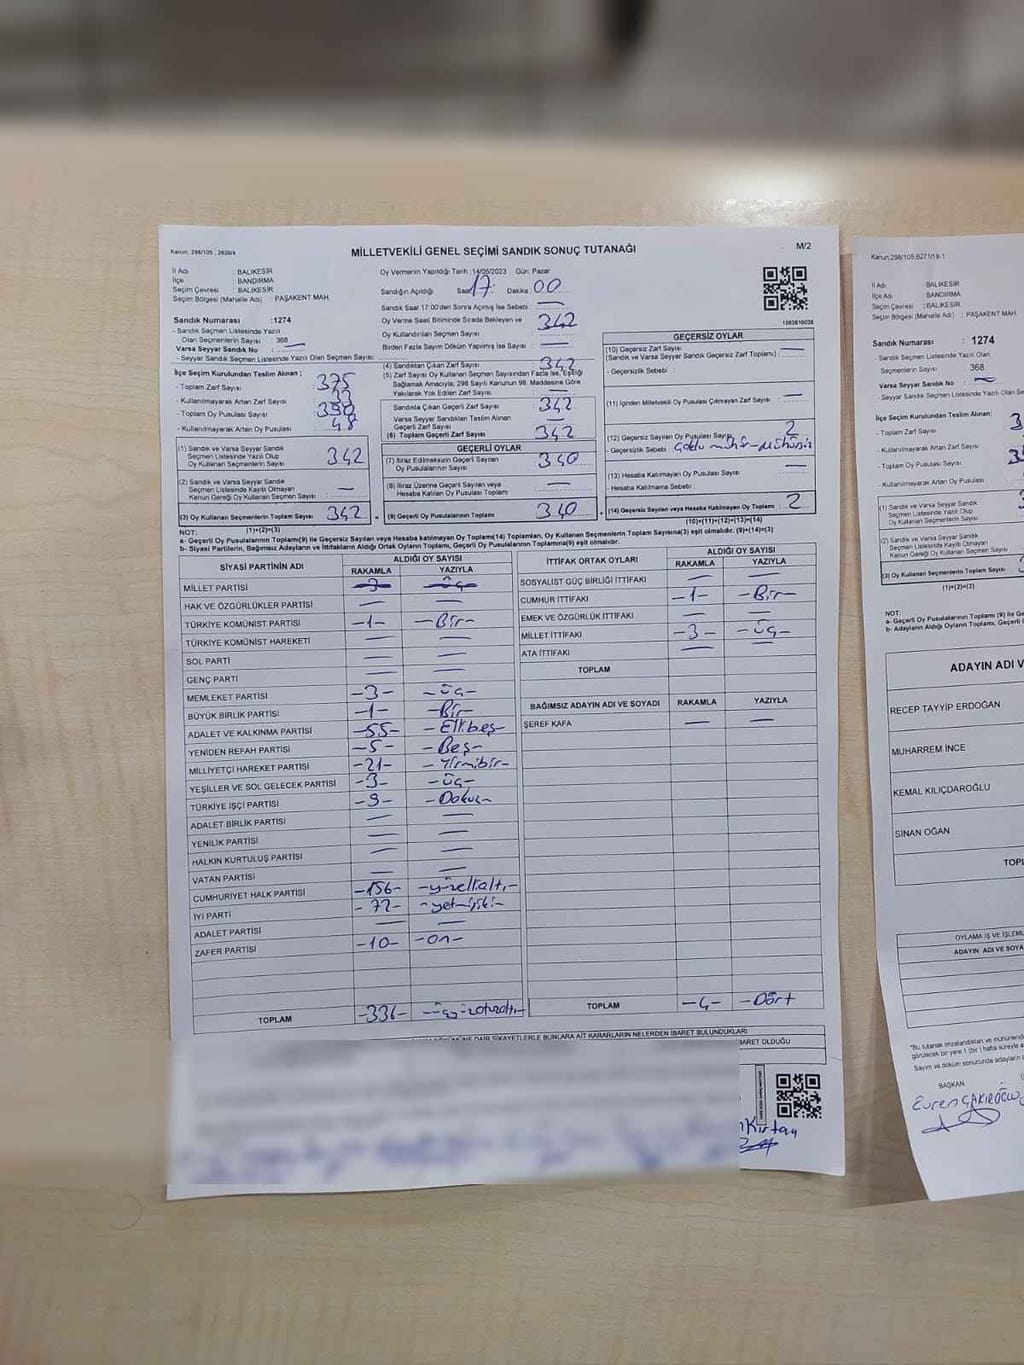 Kanun: 298/105 , 2839/4
MİLLETVEKİLİ GENEL SEÇİMİ SANDIK SONUÇ TUTANAĞI
M/2
İl Adı : BALIKESİR
İlçe : BANDIRMA
Seçim Çevresi : BALIKESİR
Seçim Bölgesi (Mahalle Adı) : PAŞAKENT MAH.
Oy Vermenin Yapıldığı Tarih :14/05/2023 Gün: Pazar
Sandığın Açıldığı Saat: 17 Dakika: 00
Sandık Saat 17:00'den Sonra Açılmış İse Sebebi : —
Oy Verme Saati Bitiminde Sırada Bekleyen ve
Oy Kullandırılan Seçmen Sayısı : 342
Birden Fazla Sayım Döküm Yapılmış İse Sayısı : —
Sandık Numarası :1274
- Sandık Seçmen Listesinde Yazılı
Olan Seçmenlerin Sayısı 368
Varsa Seyyar Sandık No : —
- Seyyar Sandık Seçmen Listesinde Yazılı Olan Seçmen Sayısı:
İlçe Seçim Kurulundan Teslim Alınan ;
- Toplam Zarf Sayısı : 375
- Kullanılmayarak Artan Zarf Sayısı : 33
- Toplam Oy Pusulası Sayısı : 390
- Kullanılmayarak Artan Oy Pusulası : 48
(1) Sandık ve Varsa Seyyar Sandık
Seçmen Listesinde Yazılı Olup
Oy Kullanan Seçmenlerin Sayısı : 342
(2) Sandık ve Varsa Seyyar Sandık
Seçmen Listesinde Kayıtlı Olmayan
Kanun Gereği Oy Kullanan Seçmen Sayısı : —
(3) Oy Kullanan Seçmenlerin Toplam Sayısı : 342
(1)+(2)=(3)
(4) Sandıktan Çıkan Zarf Sayısı : 342
(5) Zarf Sayısı Oy Kullanan Seçmen Sayısından Fazla İse, Eşitliği
Sağlamak Amacıyla; 298 Sayılı Kanunun 98. Maddesine Göre
Yakılarak Yok Edilen Zarf Sayısı : —
Sandıkta Çıkan Geçerli Zarf Sayısı : 342
Varsa Seyyar Sandıktan Teslim Alınan
Geçerli Zarf Sayısı : —
(6) Toplam Geçerli Zarf Sayısı : 342
GEÇERLİ OYLAR
(7) İtiraz Edilmeksizin Geçerli Sayılan
Oy Pusulalarının Sayısı : 340
(8) İtiraz Üzerine Geçerli Sayılan veya
Hesaba Katılan Oy Pusulası Toplamı : —
(9) Geçerli Oy Pusulalarının Toplamı : 340
GEÇERSİZ OYLAR
(10) Geçersiz Zarf Sayısı : —
(Sandık ve Varsa Seyyar Sandık Geçersiz Zarf Toplamı)
- Geçersizlik Sebebi :
(11) İçinden Milletvekili Oy Pusulası Çıkmayan Zarf Sayısı : —
(12) Geçersiz Sayılan Oy Pusulası Sayısı : 2
- Geçersizlik Sebebi : Çoklu mühür - Mühürsüz
(13) Hesaba Katılmayan Oy Pusulası Sayısı : —
- Hesaba Katılmama Sebebi :
(14) Geçersiz Sayılan veya Hesaba Katılmayan Oy Toplamı : 2
(10)+(11)+(12)+(13)=(14)
NOT:
a- Geçerli Oy Pusulasının Toplamı(9) ile Geçersiz Sayılan veya Hesaba katılmayan Oy Toplamı(14) Toplamları, Oy Kullanan Seçmenlerin Toplam Sayısına(3) eşit olmalıdır. (9)+(14)=(3)
b- Siyasi Partilerin, Bağımsız Adayların ve İttifakların Aldığı Ortak Oyların Toplamı, Geçerli Oy Pusulalarının Toplamına(9) eşit olmalıdır.
SİYASİ PARTİNİN ADI ALDIĞI OY SAYISI
RAKAMLA YAZIYLA
MİLLET PARTİSİ -3- -üç-
HAK VE ÖZGÜRLÜKLER PARTİSİ — —
TÜRKİYE KOMÜNİST PARTİSİ -1- -Bir-
TÜRKİYE KOMÜNİST HAREKETİ — —
SOL PARTİ — —
GENÇ PARTİ — —
MEMLEKET PARTİSİ -3- -üç-
BÜYÜK BİRLİK PARTİSİ -1- -Bir-
ADALET VE KALKINMA PARTİSİ -55- -Ellibeş-
YENİDEN REFAH PARTİSİ -5- -Beş-
MİLLİYETÇİ HAREKET PARTİSİ -21- -Yirmibir-
YEŞİLLER VE SOL GELECEK PARTİSİ -3- -üç-
TÜRKİYE İŞÇİ PARTİSİ -9- -Dokuz-
ADALET BİRLİK PARTİSİ — —
YENİLİK PARTİSİ — —
HALKIN KURTULUŞ PARTİSİ — —
VATAN PARTİSİ — —
CUMHURİYET HALK PARTİSİ -156- -yüzellialtı-
İYİ PARTİ -72- -yetmişiki-
ADALET PARTİSİ — —
ZAFER PARTİSİ -10- -on-
TOPLAM -336- -üçyüzotuzaltı-
İTTİFAK ORTAK OYLARI ALDIĞI OY SAYISI
RAKAMLA YAZIYLA
SOSYALİST GÜÇ BİRLİĞİ İTTİFAKI — —
CUMHUR İTTİFAKI -1- -Bir-
EMEK VE ÖZGÜRLÜK İTTİFAKI — —
MİLLET İTTİFAKI -3- -üç-
ATA İTTİFAKI — —
TOPLAM
BAĞIMSIZ ADAYIN ADI VE SOYADI RAKAMLA YAZIYLA
ŞEREF KAFA — —
TOPLAM -4- -Dört
DAİR ŞİKAYETLERLE BUNLARA AİT KARARLARIN NELERDEN İBARET BULUNDUKLARI
BARET OLDUĞU
Kanun:298/105;6271/18-1
İl Adı : BALIKESİR
İlçe Adı : BANDIRMA
Seçim Çevresi : BALIKESİR
Seçim Bölgesi (Mahalle Adı) : PAŞAKENT MAH.
Sandık Numarası : 1274
- Sandık Seçmen Listesinde Yazılı Olan
Seçmenlerin Sayısı: 368
Varsa Seyyar Sandık No : —
- Seyyar Sandık Seçmen Listesinde Yazılı O
İlçe Seçim Kurulundan Teslim Alınan:
- Toplam Zarf Sayısı :
- Kullanılmayarak Artan Zarf Sayısı :
- Toplam Oy Pusulası Sayısı :
- Kullanılmayarak Artan Oy Pusulası :
(1) Sandık ve Varsa Seyyar Sandık
Seçmen Listesinde Yazılı Olup
Oy Kullanan Seçmenlerin Sayısı
(2) Sandık ve Varsa Seyyar Sandık
Seçmen Listesinde Kayıtlı Olmayan
Kanun Gereği Oy Kullanan Seçmen Sayısı :
(3) Oy Kullanan Seçmenlerin Toplam Sayısı :
(1)+(2)=(3)
NOT:
a- Geçerli Oy Pusulalarının Toplamı (9) ile Geçersiz
b- Adayların Aldığı Oyların Toplamı, Geçerli O
ADAYIN ADI V
RECEP TAYYİP ERDOĞAN
MUHARREM İNCE
KEMAL KILIÇDAROĞLU
SİNAN OĞAN
TOPL
OYLAMA İŞ VE İŞLEML
ADAYIN ADI VE SOYA
BAŞKAN
Evren ÇAKIROĞLU